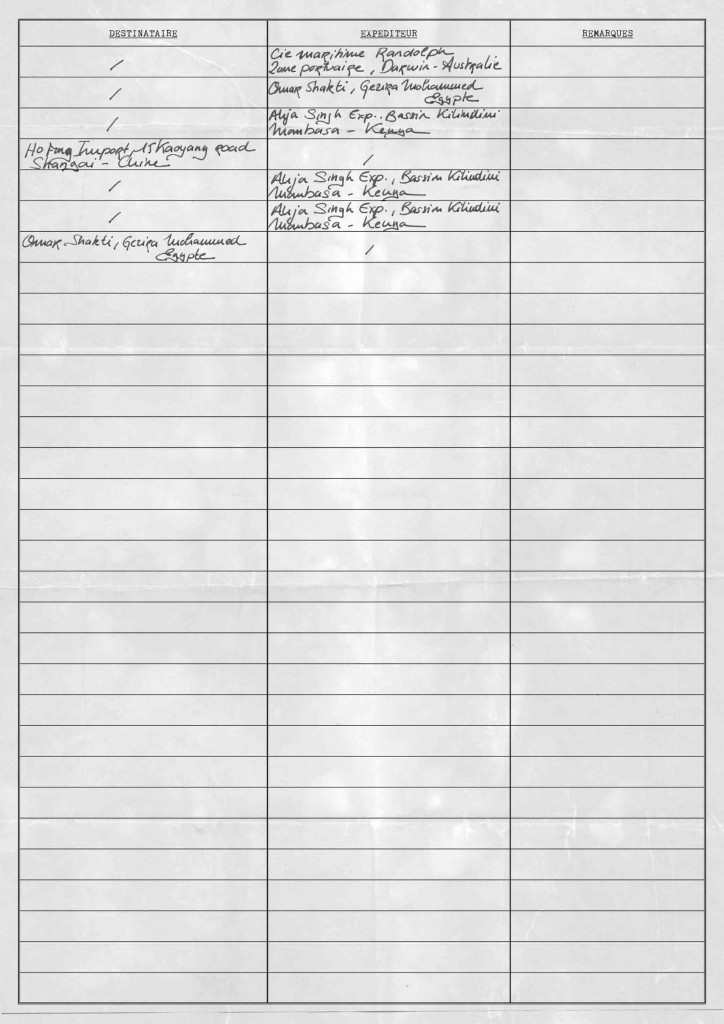 DESTINATAIRE EXPEDITEUR REMARQUES
/ Cie maritime Randolph
Zone portuaire, Darwin - Australie
/ Omar Shakti, Gezira Mohammed
Egypte
/ Ahja Singh Exp., Bassin Kilindini
Mombasa - Kenya
Ho Fong Import, 15 Kaoyang road
Shangai - Chine /
/ Ahja Singh Exp., Bassin Kilindini
Mombasa - Kenya
/ Ahja Singh Exp., Bassin Kilindini
Mombasa - Kenya
Omar Shakti, Gezira Mohammed
Egypte /